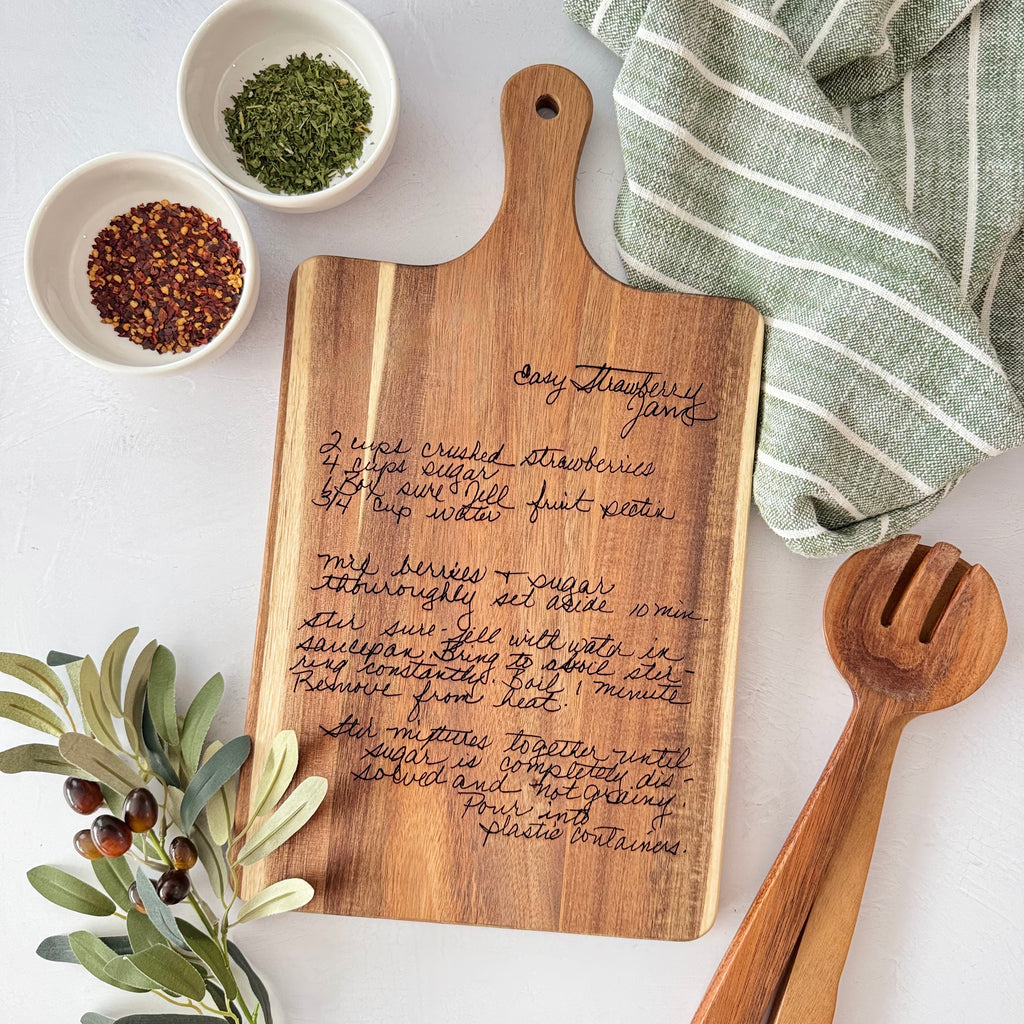 Easy Strawberry
Jam
2 cups crushed strawberries
4 cups sugar
1 Box sure Jell fruit pectin
3/4 cup water
mix berries + sugar
thouroughly set aside 10 min.
Stir sure-Jell with water in
saucepan. Bring to a boil stir-
ring constantly. Boil 1 minute
Remove from heat.
Stir mixtures together until
sugar is completely dis-
solved and not grainy.
Pour into
plastic containers.